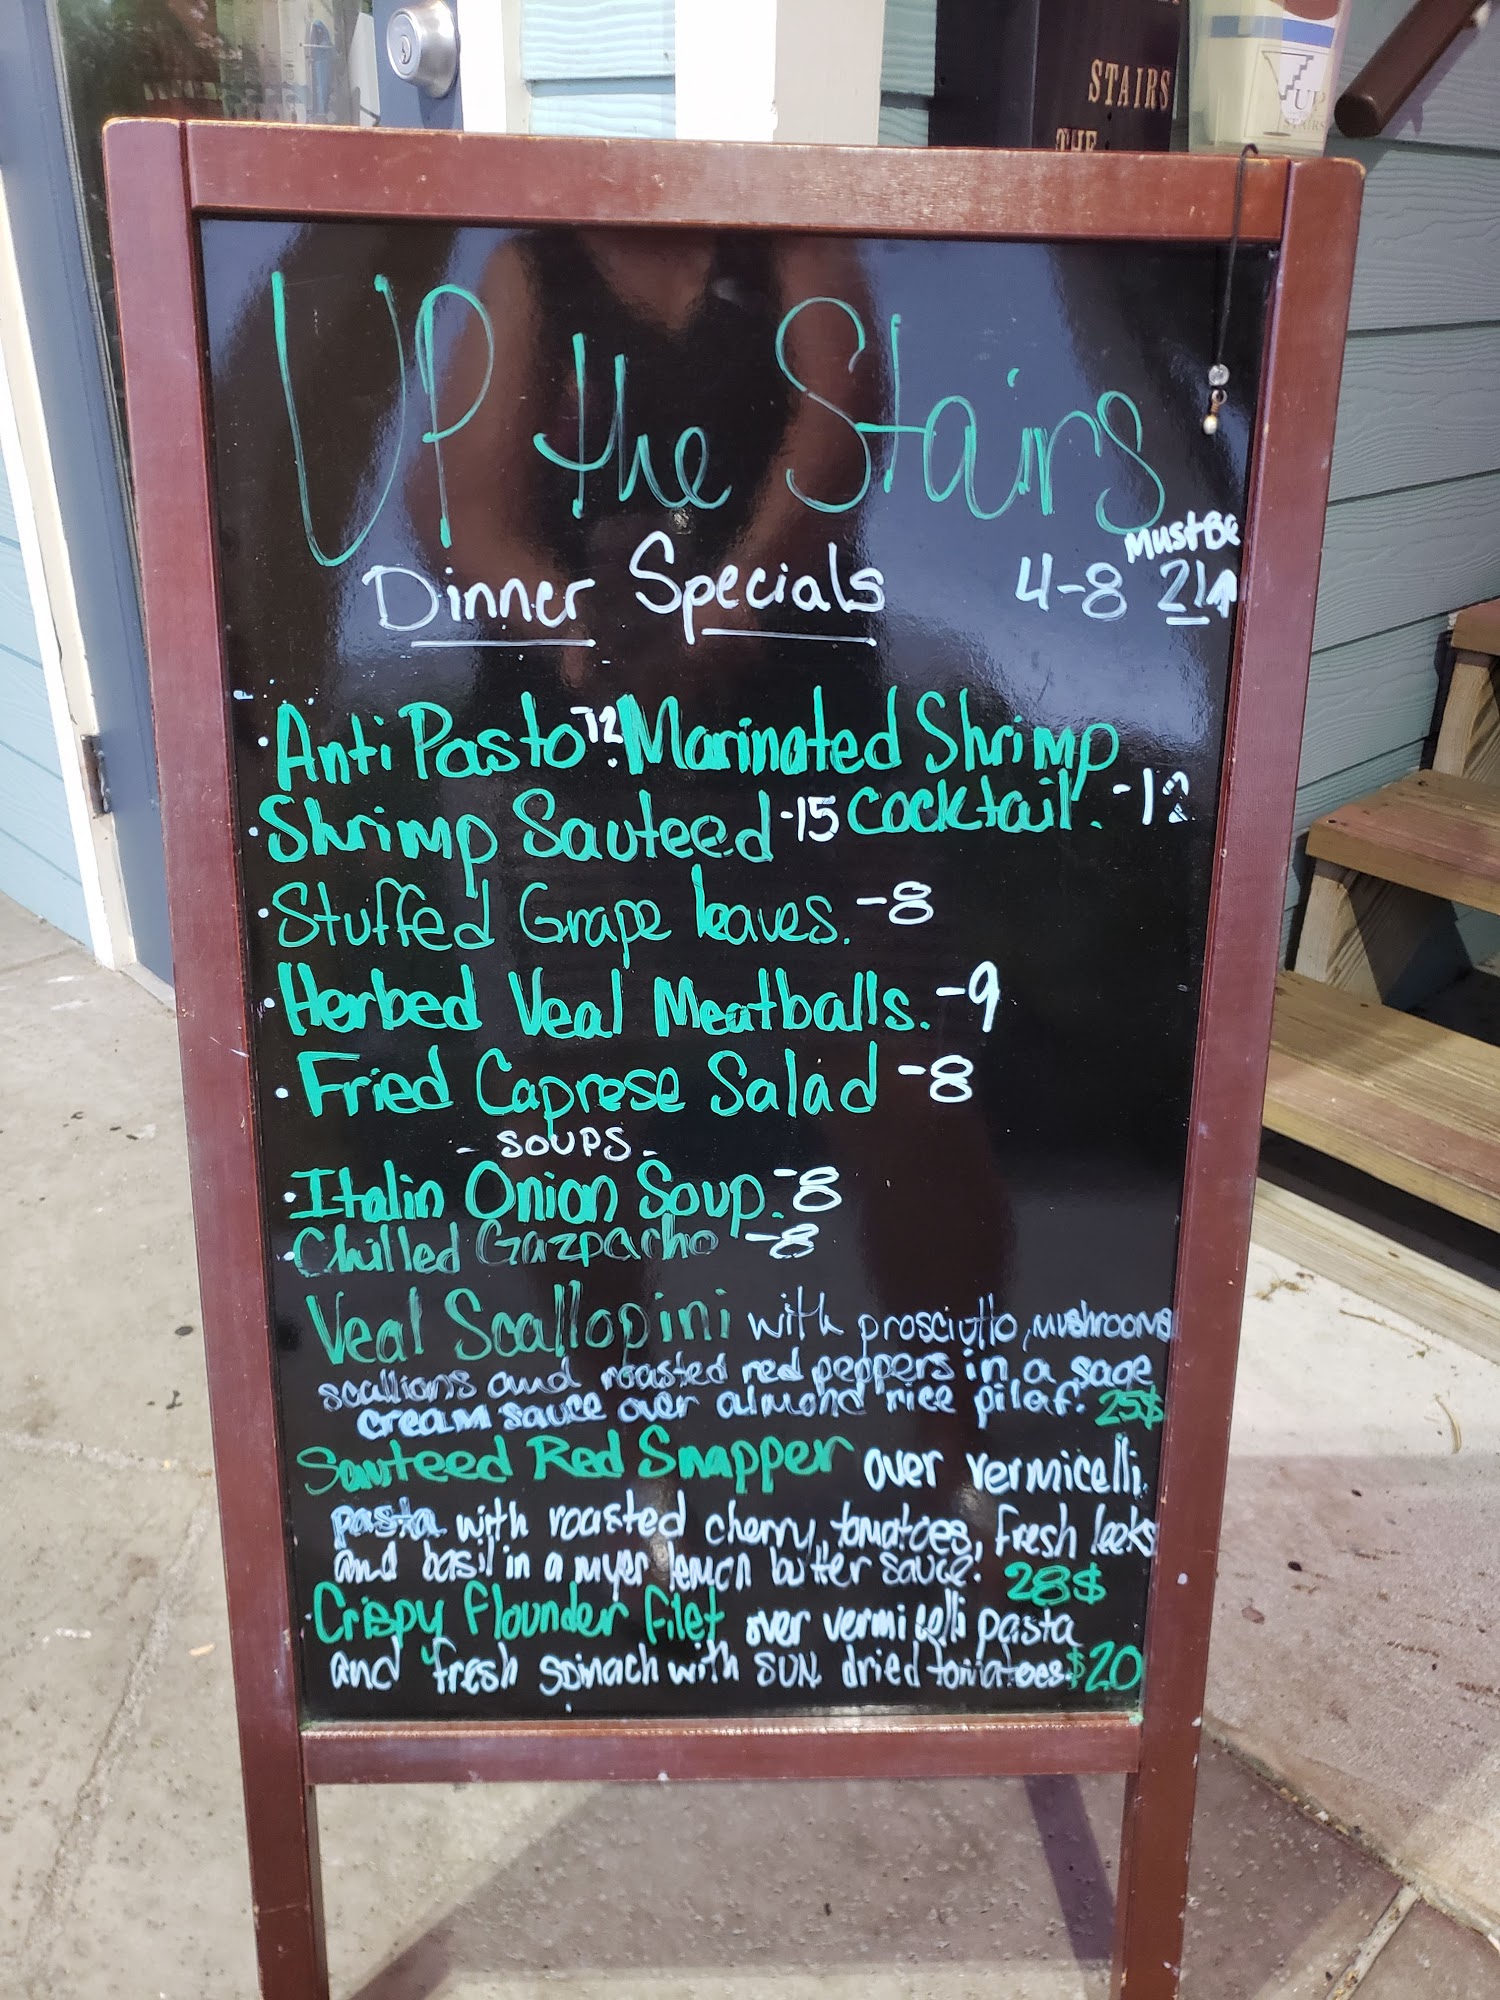 STAIRS
THE
UP
STAIRS
UP the Stairs
Dinner Specials 4-8 Must Be 21↑
· Anti Pasto -12 · Marinated Shrimp
· Shrimp Sauteed -15 cocktail. -12
· Stuffed Grape leaves. -8
· Herbed Veal Meatballs. -9
· Fried Caprese Salad -8
- SOUPS -
· Italin Onion Soup. -8
· Chilled Gazpacho -8
Veal Scallopini with prosciutto, mushrooms
scallions and roasted red peppers in a sage
cream sauce over almond rice pilaf. 25$
Sauteed Red Snapper over vermicelli
pasta with roasted cherry tomatoes, fresh leeks
and basil in a myer lemon butter sauce! 28$
Crispy flounder filet over vermicelli pasta
and fresh spinach with SUN dried tomatoes. $20